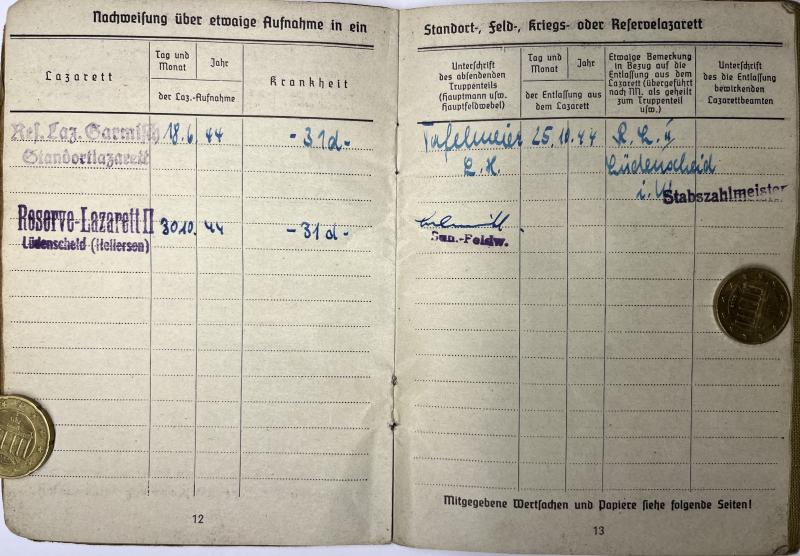 Nachweisung über etwaige Aufnahme in ein
Lazarett
Tag und Monat
Jahr
der Laz.-Aufnahme
Krankheit
Res. Laz. Garmisch 18.6. 44 - 31d -
Standortlazarett
Reserve-Lazarett II 30.10. 44 - 31d -
Lüdenscheid (Hellersen)
12
Standort-, Feld-, Kriegs- oder Reservelazarett
Unterschrift
des absendenden
Truppenteils
(Hauptmann usw.
Hauptfeldwebel)
Tag und Monat
Jahr
der Entlassung aus
dem Lazarett
Etwaige Bemerkung
in Bezug auf die
Entlassung aus dem
Lazarett (übergeführt
nach NN. als geheilt
zum Truppenteil
usw.)
Unterschrift
des die Entlassung
bewirkenden
Lazarettbeamten
Tafelmeier 25.10.44 R. L. II
Lüdenscheid
i. W.
Stabszahlmeister
San.-Feldw.
Mitgegebene Wertsachen und Papiere siehe folgende Seiten!
13